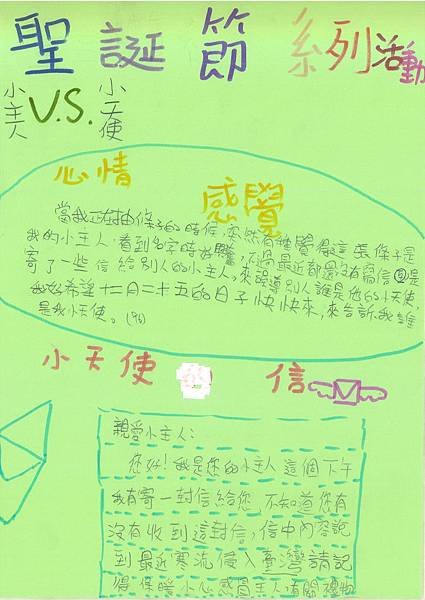 聖誕節系列活動
小主人V.S.小天使
心情感覺
當我正在抽條子的時候,突然有種覺得這張條子是
我的小主人,看到名字時好,不過最近都還沒有寫信,是
寄了一些信給別人的小主人,來誤導別人誰是他的小天使,
我好希望十二月二十五的日子快快來,來告訴我誰
是我小天使。(96)
小天使 信
親愛小主人:
您好!我是您的小主人這個下午
我有寄一封信給您,不知道您有
沒有收到這封信,信中內容說
到最近寒流侵入臺灣請記
得保暖小心感冒主人有關禮物